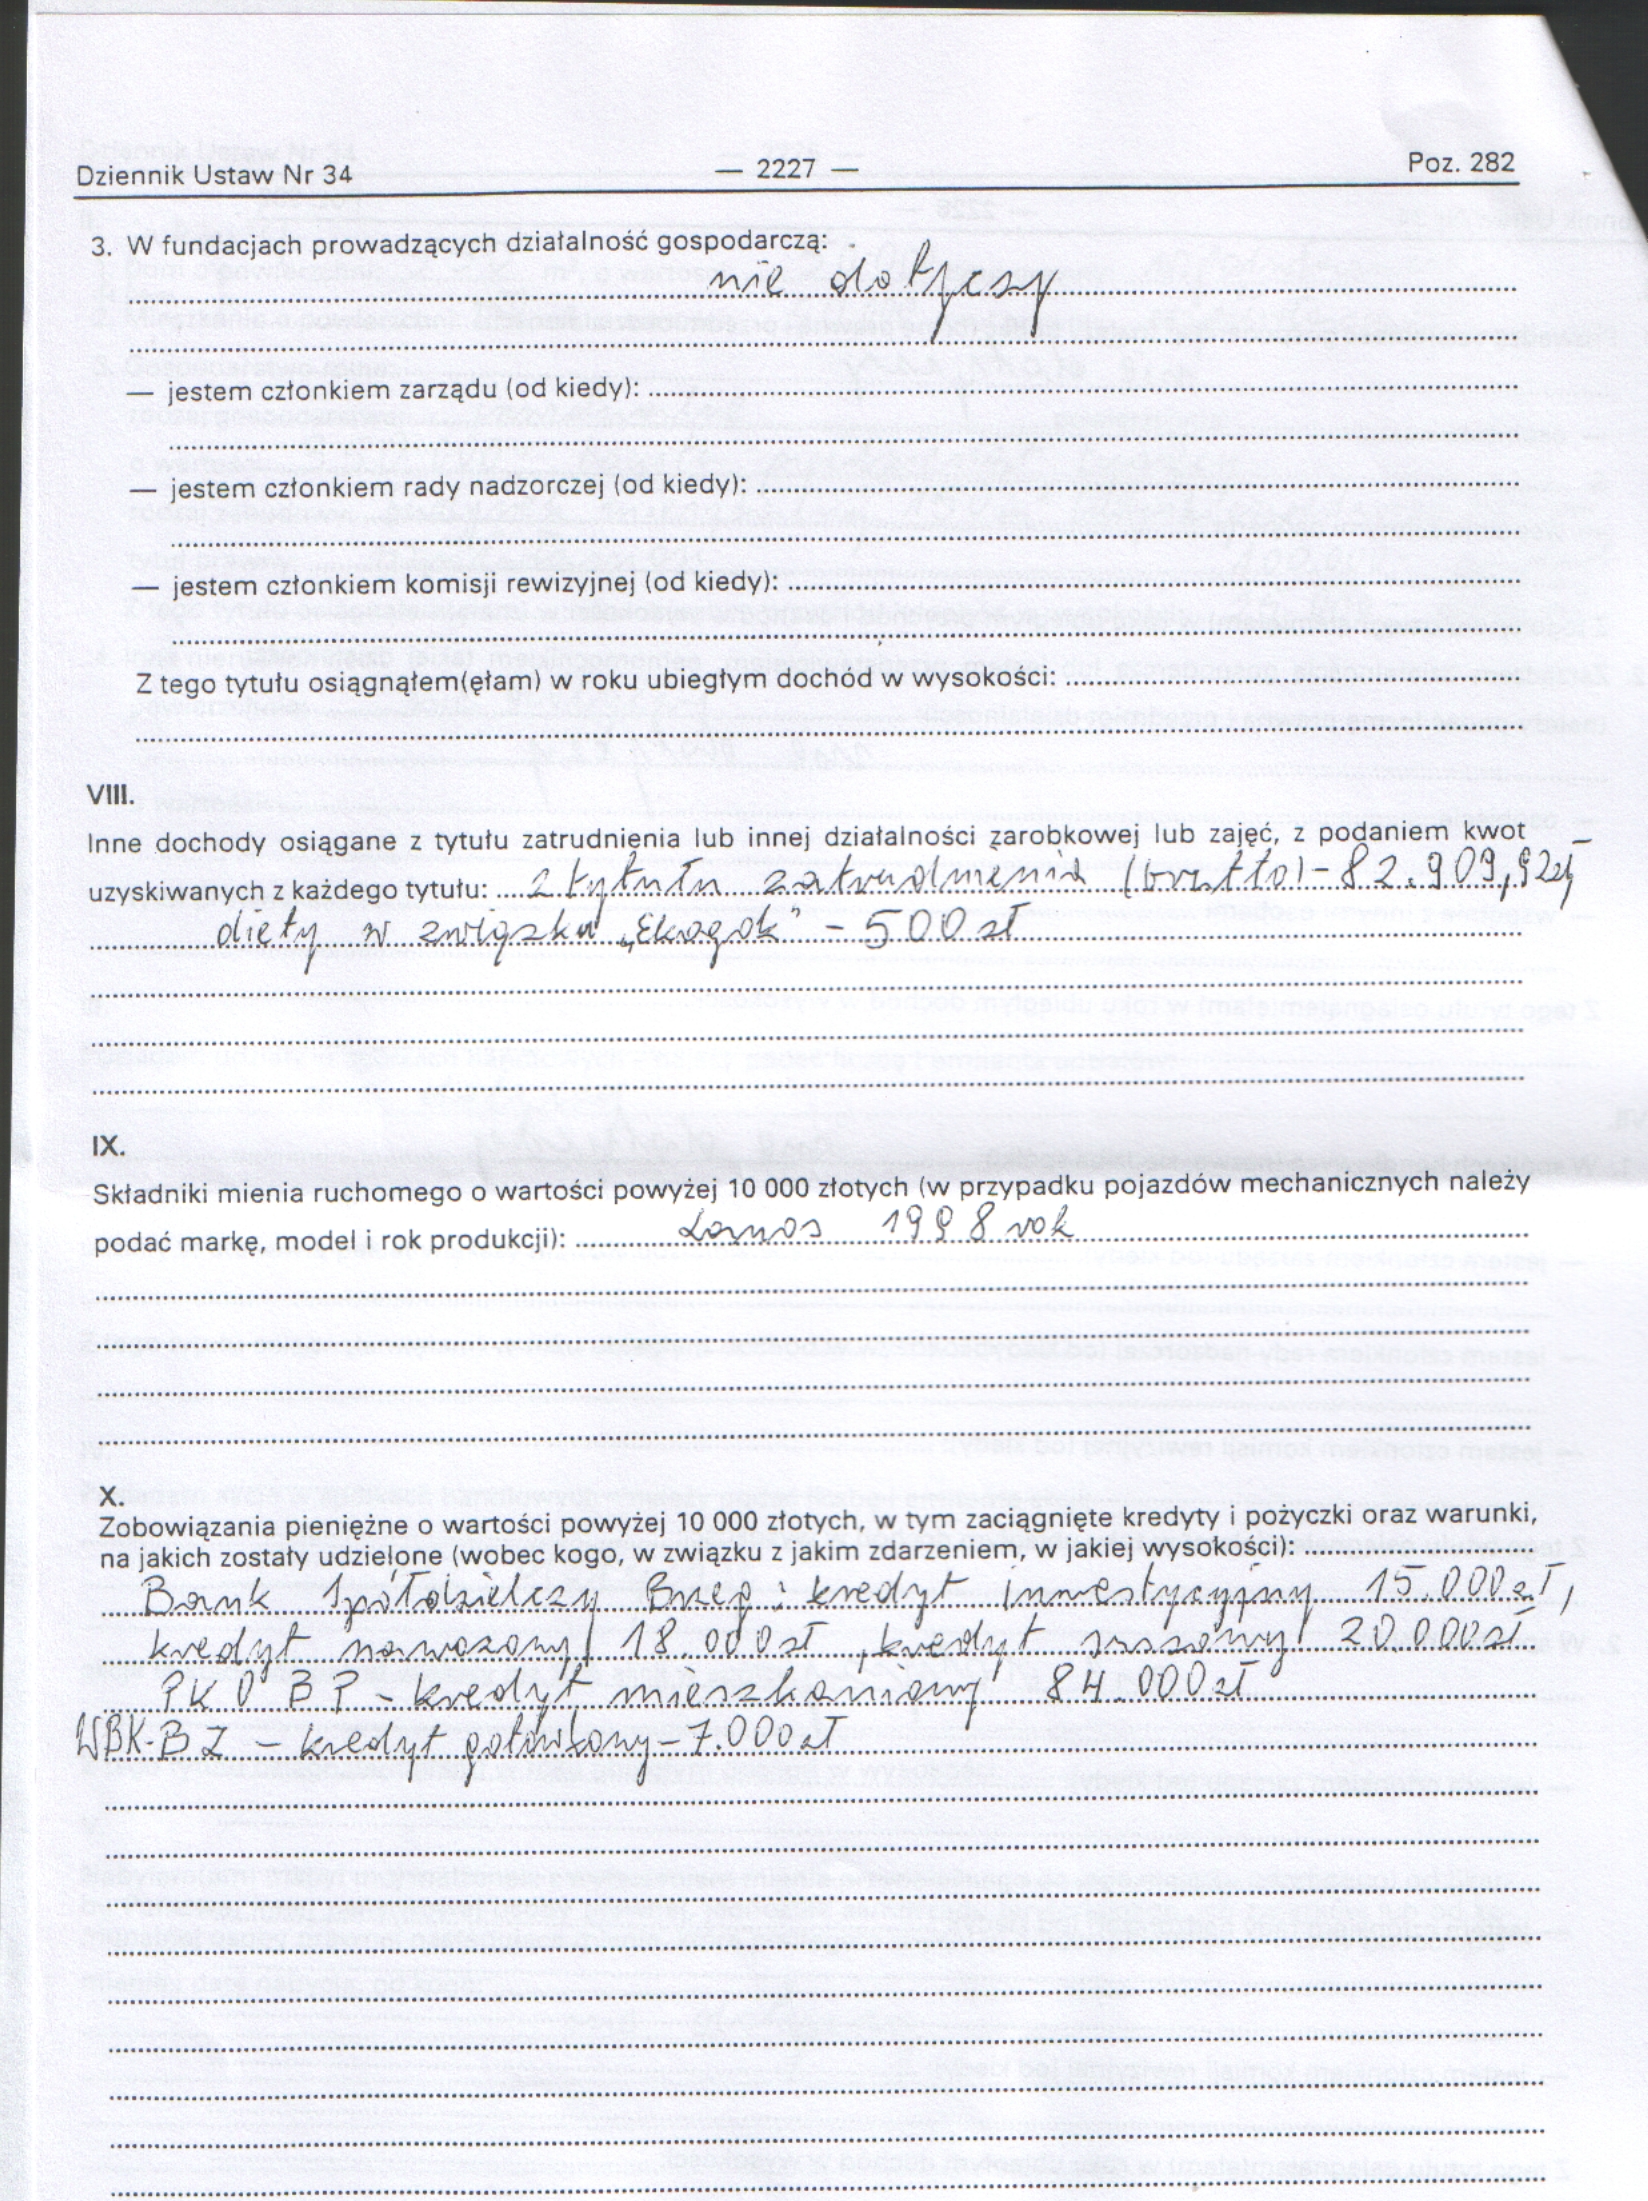 Dziennik Ustaw Nr 34 — 2227 — Poz. 282
3. W fundacjach prowadzących działalność gospodarczą:
nie dotyczy
— jestem członkiem zarządu (od kiedy):
— jestem członkiem rady nadzorczej (od kiedy):
— jestem członkiem komisji rewizyjnej (od kiedy):
Z tego tytułu osiągnąłem(ęłam) w roku ubiegłym dochód w wysokości:
VIII.
Inne dochody osiągane z tytułu zatrudnienia lub innej działalności zarobkowej lub zajęć, z podaniem kwot
uzyskiwanych z każdego tytułu: z tytułu zatrudnienia (brutto) - 82.909,92zł
diety w związku „Ekogok" - 500 zł
IX.
Składniki mienia ruchomego o wartości powyżej 10 000 złotych (w przypadku pojazdów mechanicznych należy
podać markę, model i rok produkcji): Lanos 1998 rok
X.
Zobowiązania pieniężne o wartości powyżej 10 000 złotych, w tym zaciągnięte kredyty i pożyczki oraz warunki,
na jakich zostały udzielone (wobec kogo, w związku z jakim zdarzeniem, w jakiej wysokości):
Bank Spółdzielczy Brzeg : kredyt inwestycyjny 15.000 zł,
kredyt nawozowy 18.000 zł , kredyt suszowy 20.000 zł.
PKO BP - kredyt mieszkaniowy 84.000 zł
WBK-BZ - kredyt gotówkowy - 7.000 zł